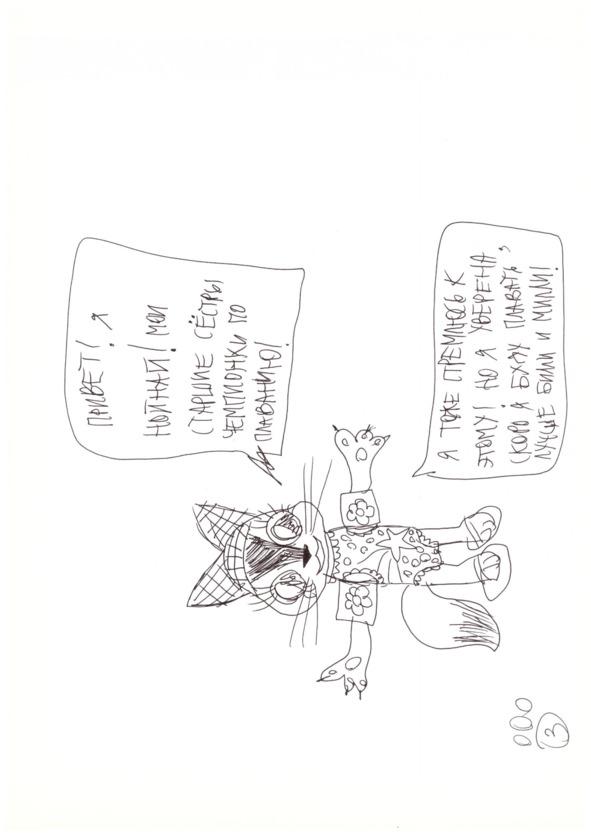 ПРИВЕТ! Я
НОЙНАЙ! МОИ
СТАРШИЕ СЁСТРЫ
ЧЕМПИОНКИ ПО
ПЛАВАНИЮ!
Я ТОЖЕ СТРЕМЛЮСЬ К
ЭТОМУ! НО Я УВЕРЕНА,
СКОРО Я БУДУ ПЛАВАТЬ,
ЛУЧШЕ БИЛЛИ И МИЛЛИ!
3